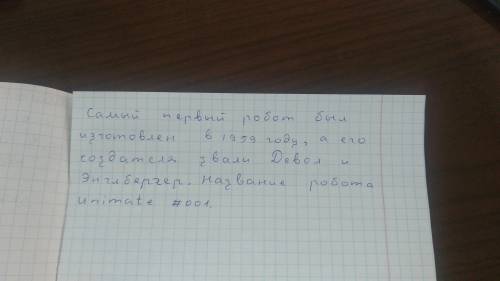 Самый первый робот был
изготовлен в 1959 году, а его
создателя звали Девол и
Энгилбергер. Название робота
Unimate #001.